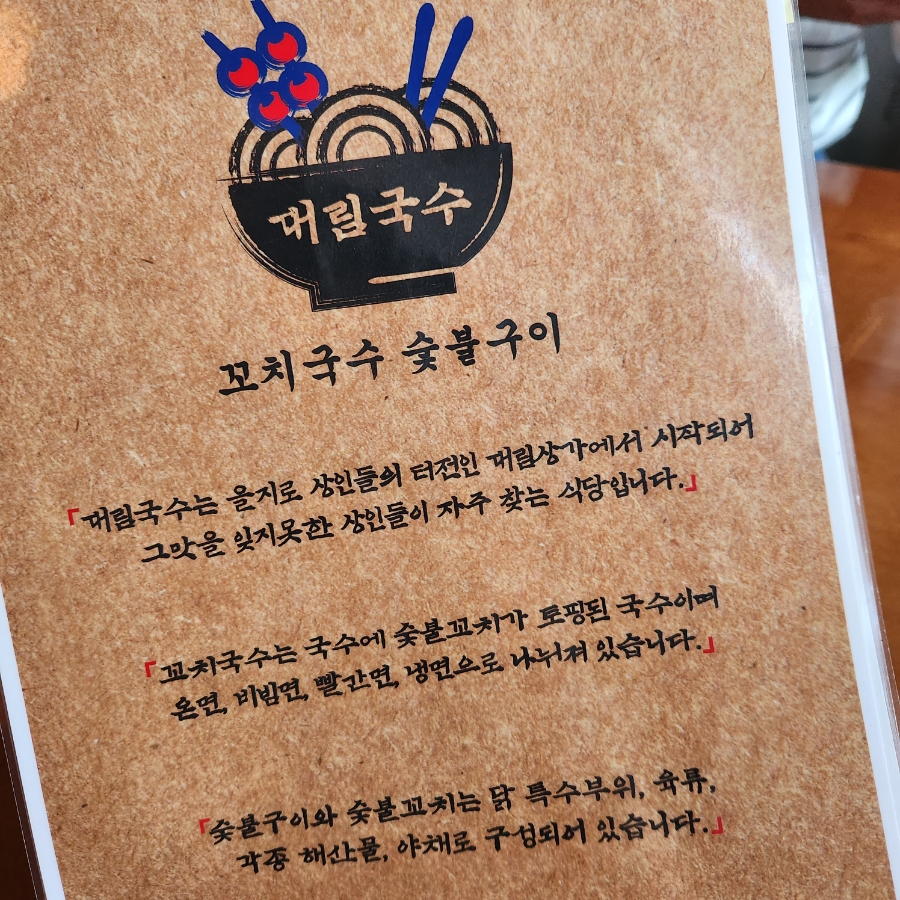 대림국수
꼬치국수 숯불구이
「대림국수는 을지로 상인들의 터전인 대림상가에서 시작되어
그맛을 잊지못한 상인들이 자주 찾는 식당입니다.」
「꼬치국수는 국수에 숯불꼬치가 토핑된 국수이며
온면, 비빔면, 빨간면, 냉면으로 나뉘져 있습니다.」
「숯불구이와 숯불꼬치는 닭 특수부위, 육류,
각종 해산물, 야채로 구성되어 있습니다.」